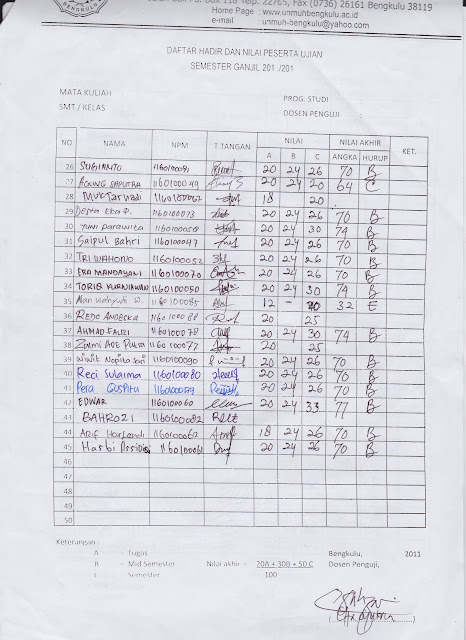 BENGKULU
Jalan Bali Po. Box 118 Telp. 22765, Fax (0736) 26161 Bengkulu 38119
Home Page : www.unmuhbengkulu.ac.id
e-mail : unmuh-bengkulu@yahoo.com
DAFTAR HADIR DAN NILAI PESERTA UJIAN
SEMESTER GANJIL 201 /201
MATA KULIAH PROG. STUDI
SMT / KELAS DOSEN PENGUJI
NO NAMA NPM T.TANGAN NILAI NILAI AKHIR KET.
A B C ANGKA HURUP
26 SUGIANTO 1160100091 20 24 26 70 B
27 AGUNG SAPUTRA 1160100049 20 24 20 64 C
28 MUKTAR 18 20
29 Depta Eka P. 1160100073 20 24 26 70 B
30 Yuni parawita 20 24 30 74 B
31 Saipul Bahri 1160100047 20 24 26 70 B
32 TRI WAHONO 1160100052 20 24 26 70 B
33 ERA MANDAYANI 1160100070 20 24 26 70 B
34 TORIQ KURNIAWAN 1160100050 20 24 30 74 B
35 W. 1160100085 12 - 32 E
36 REDO ANDECKA 20 25
37 AHMAD FAUZI 1160100078 20 24 30 74 B
38 ADE PUTRA 1160100077 20 25
39 Wiwit Nopita Sari 1160100090 20 24 26 70 B
40 Reci Sulaima 1160100080 20 24 26 70 B
41 Pera GUSPITA 20 24 26 70 B
42 EDWAR 1160100060 20 24 33 77 B
43 BAHROZI 1160100082
44 Arif Hartandi 1160100067 18 24 26 70 B
45 Hasbi 1160100061 20 24 26 70 B
46
47
48
49
50
Keterangan :
A = Tugas Bengkulu, 2011
B = Mid Semester Nilai akhir = 20A + 30B + 50 C Dosen Penguji,
Semester 100